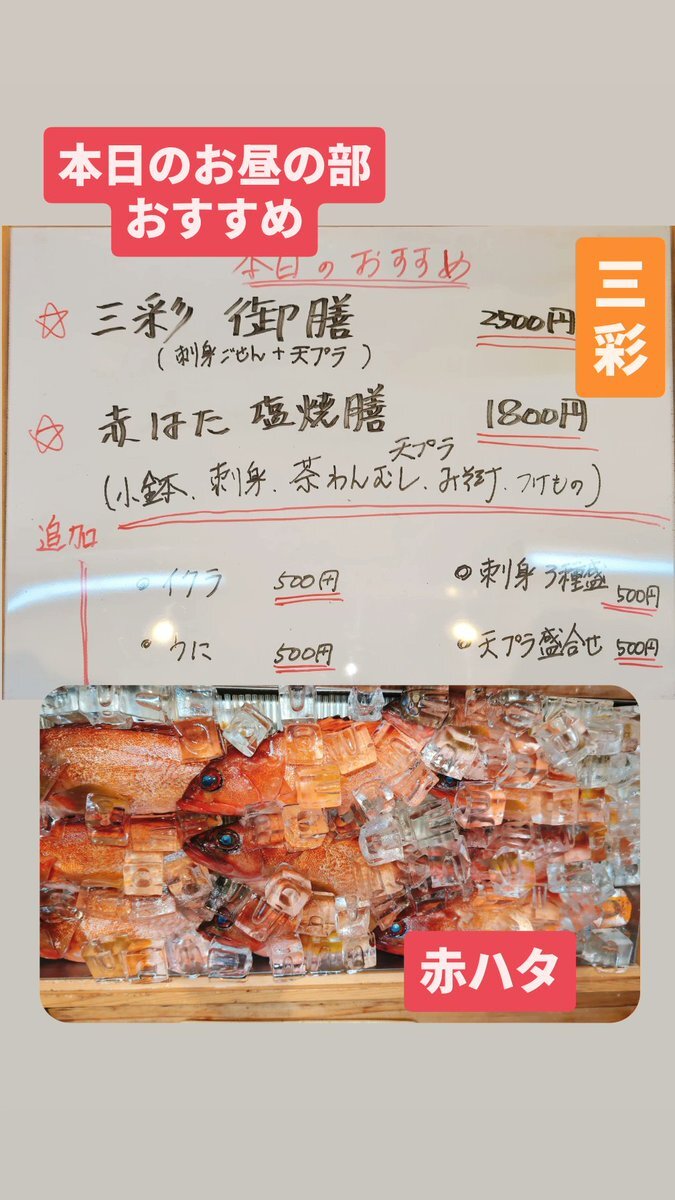 本日のお昼の部
おすすめ
三彩
本日のおすすめ
☆ 三彩 御膳 2500円
(刺身ごぜん+天プラ)
☆ 赤はた 塩焼膳 1800円
天プラ
(小鉢、刺身、茶わんむし、みそ汁、つけもの)
追加
イクラ 500円
刺身3種盛 500円
うに 500円
天プラ盛合せ 500円
赤ハタ